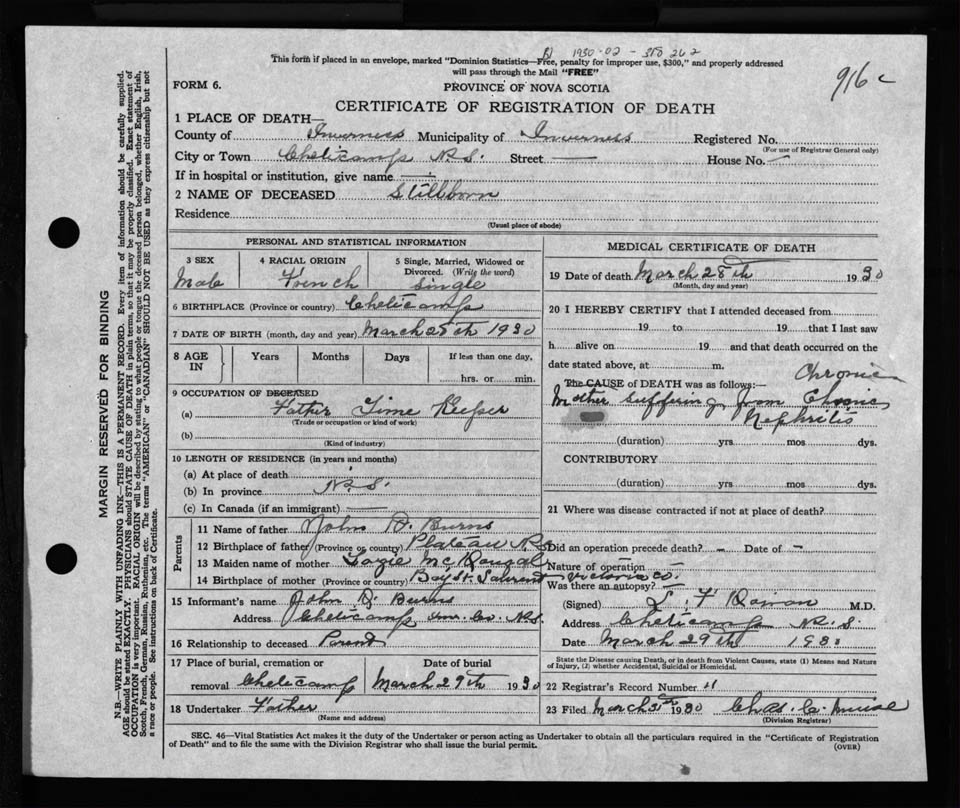 1930-02-380262
916 c
This form if placed in an envelope, marked "Dominion Statistics—Free, penalty for improper use, $300," and properly addressed
will pass through the Mail "FREE"
FORM 6.
PROVINCE OF NOVA SCOTIA
CERTIFICATE OF REGISTRATION OF DEATH
1 PLACE OF DEATH—
County of Inverness Municipality of Inverness Registered No.
(For use of Registrar General only)
City or Town Cheticamp N.S. Street — House No. —
If in hospital or institution, give name —
2 NAME OF DECEASED Stillborn
Residence
(Usual place of abode)
PERSONAL AND STATISTICAL INFORMATION
3 SEX 4 RACIAL ORIGIN 5 Single, Married, Widowed or
Divorced. (Write the word)
Male French Single
6 BIRTHPLACE (Province or country) Cheticamp
7 DATE OF BIRTH (month, day and year) March 28th 1930
8 AGE IN Years Months Days If less than one day,
hrs. or min.
9 OCCUPATION OF DECEASED
(a) Father Time Keeper
(Trade or occupation or kind of work)
(b)
(Kind of industry)
10 LENGTH OF RESIDENCE (in years and months)
(a) At place of death
(b) In province N.S.
(c) In Canada (if an immigrant) —
Parents
11 Name of father John D. Burns
12 Birthplace of father (Province or country) Plateau N.S.
13 Maiden name of mother McDougal
14 Birthplace of mother (Province or country) Bay St. Laurent Victoria Co.
15 Informant's name John D. Burns
Address Cheticamp Inv. Co. N.S.
16 Relationship to deceased Parent
17 Place of burial, cremation or Date of burial
removal Cheticamp March 29th 1930
18 Undertaker Father
(Name and address)
MEDICAL CERTIFICATE OF DEATH
19 Date of death March 28th 1930
(Month, day and year)
20 I HEREBY CERTIFY that I attended deceased from
19 to 19 that I last saw
h alive on 19 and that death occurred on the
date stated above, at m.
Chronic
The CAUSE of DEATH was as follows:—
Mother suffering from Chronic
Nephritis
(duration) yrs mos dys.
CONTRIBUTORY
(duration) yrs. mos dys.
21 Where was disease contracted if not at place of death?
Did an operation precede death? – Date of –
Nature of operation –
Was there an autopsy? –
(Signed) M.D.
Address Cheticamp N.S.
Date March 29th 1930
State the Disease causing Death, or in death from Violent Causes, state (1) Means and Nature
of Injury, (2) whether Accidental, Suicidal or Homicidal.
22 Registrar's Record Number 11
23 Filed March 31st 1930 Chas. C.
(Division Registrar)
SEC. 46—Vital Statistics Act makes it the duty of the Undertaker or person acting as Undertaker to obtain all the particulars required in the "Certificate of Registration
of Death" and to file the same with the Division Registrar who shall issue the burial permit.
(OVER)
MARGIN RESERVED FOR BINDING
N.B. WRITE PLAINLY WITH UNFADING INK—THIS IS A PERMANENT RECORD. Every item of information should be carefully supplied.
AGE should be stated EXACTLY. PHYSICIANS should STATE CAUSE OF DEATH in plain terms, so that it may be properly classified. Exact statement of
OCCUPATION is very important. RACIAL ORIGIN will be described by stating to what people or tongue the deceased person belonged, whether English, Irish,
Scotch, French, German, Russian, Ruthenian, etc. The terms "AMERICAN" or "CANADIAN" SHOULD NOT BE USED as they express citizenship but not
a race or people. See instructions on back of Certificate.